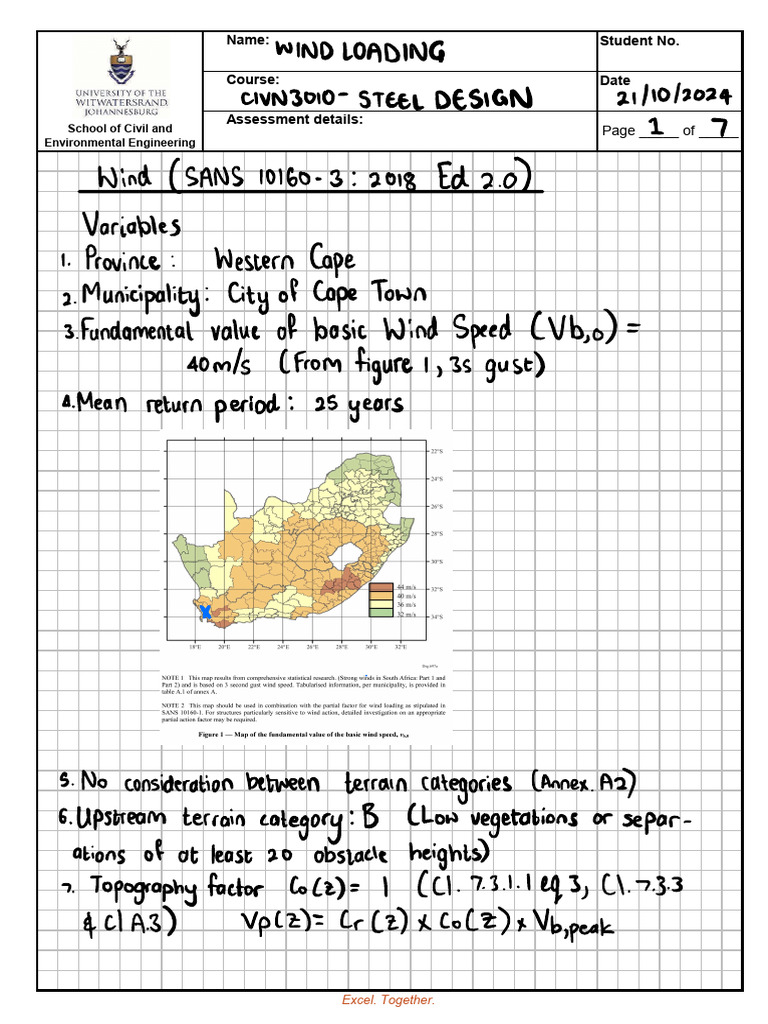 UNIVERSITY OF THE
WITWATERSRAND,
JOHANNESBURG
School of Civil and
Environmental Engineering
Name: WIND LOADING
Student No.
Course: CIVN3010- STEEL DESIGN
Date
21/10/2024
Assessment details:
Page 1 of 7
Wind (SANS 10160-3: 2018 Ed 2.0)
Variables
1. Province: Western Cape
2. Municipality: City of Cape Town
3. Fundamental value of basic Wind Speed (Vb,0) =
40m/s (From figure 1, 3s gust)
4. Mean return period: 25 years
22°S
24°S
26°S
28°S
30°S
32°S
34°S
44 m/s
40 m/s
36 m/s
32 m/s
18°E 20°E 22°E 24°E 26°E 28°E 30°E 32°E
NOTE 1 This map results from comprehensive statistical research. (Strong winds in South Africa: Part 1 and
Part 2) and is based on 3 second gust wind speed. Tabularised information, per municipality, is provided in
table A.1 of annex A.
NOTE 2 This map should be used in combination with the partial factor for wind loading as stipulated in
SANS 10160-1. For structures particularly sensitive to wind action, detailed investigation on an appropriate
partial action factor may be required.
Figure 1 — Map of the fundamental value of the basic wind speed, vb,0
5. No consideration between terrain categories (Annex. A2)
6. Upstream terrain category: B (Low vegetations or separ-
ations of at least 20 obstacle heights)
7. Topography factor Co(z) = 1 (Cl. 7.3.1.1 eq 3, Cl. 7.3.3
& Cl A.3) Vp(z) = Cr(z) x Co(z) x Vb,peak
Excel. Together.